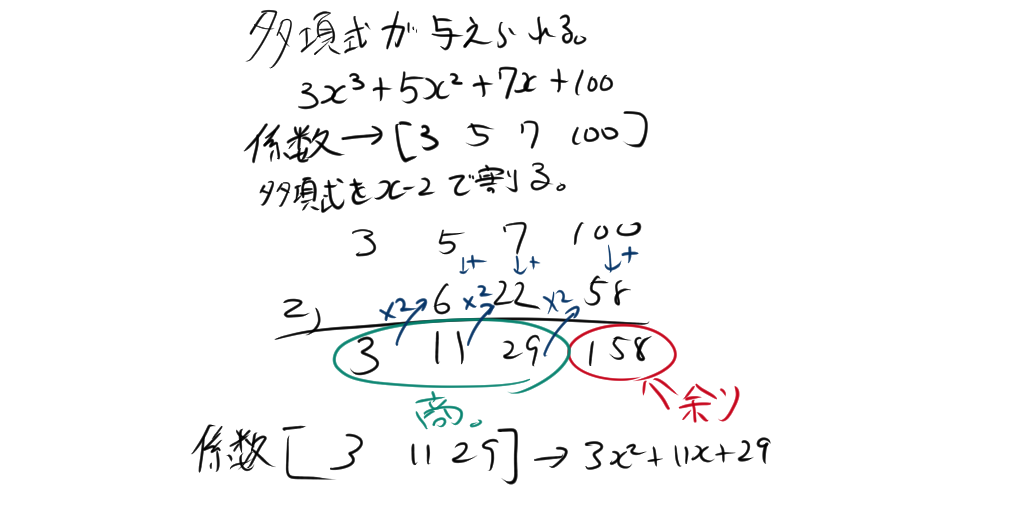 多項式が与えられる。
3x³+5x²+7x+100
係数→[3 5 7 100]
多項式をx-2で割る。
3 5 7 100
↓+ ↓+ ↓+
2) ×2 6 ×2 22 ×2 58
3 11 29 158
商。 余り
係数[3 11 29]→3x²+11x+29